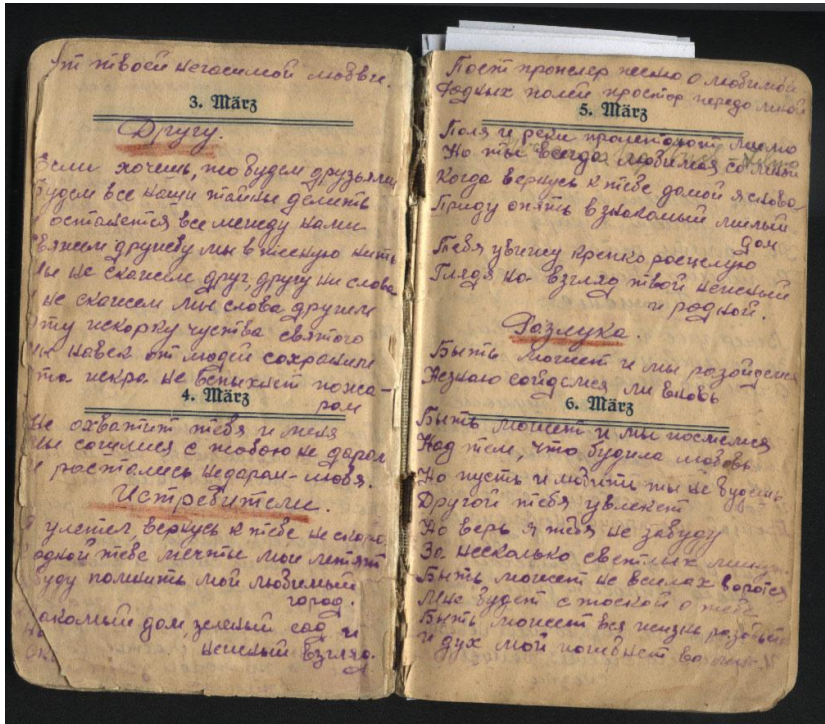 от твоей негасимой любви.
3. März
Другу.
Если хочешь, то будем друзьями
Будем все наши тайны делить
И останется все между нами
Свяжем дружбу мы в тесную нить
Мы не скажем друг, другу ни слова
И не скажем мы слова другим
Эту искорку чуства святого
Мы навек от людей сохраним
Эта искра не вспыхнет пожа-
ром
4. März
Не охватит тебя и меня
Мы сошлися с тобою не даром
И ростались недаром-любя.
Истребители.
Я улетел, вернусь к тебе не скоро
одной тебе мечты мои летят
Буду помнить мой любимый
город.
Знакомый дом, зеленый сад и
нежный взгляд.
Поет пропелер песню о любимой
Родных полей простор передо мной
5. März
Поля и реки пролетают мимо
Но ты всегда любимая со мной
Когда вернусь к тебе домой я снова
Приду опять в знакомый милый
дом
Тебя увижу крепко росцелую
Глядя на взгляд твой нежный
и родной.
Разлука.
Быть может и мы разойдемся
Незнаю сойдемся ли вновь
6. März
Быть может и мы посмеемся
Над тем, что будила любовь
Но пусть и любить ты не будешь
Другой тебя увлекет
Но верь я тебя не забуду
За несколько светлых минут
Быть может не в силах
Мне будет с тоской о тебе
Быть может вся жизнь
И дух мой погибнет